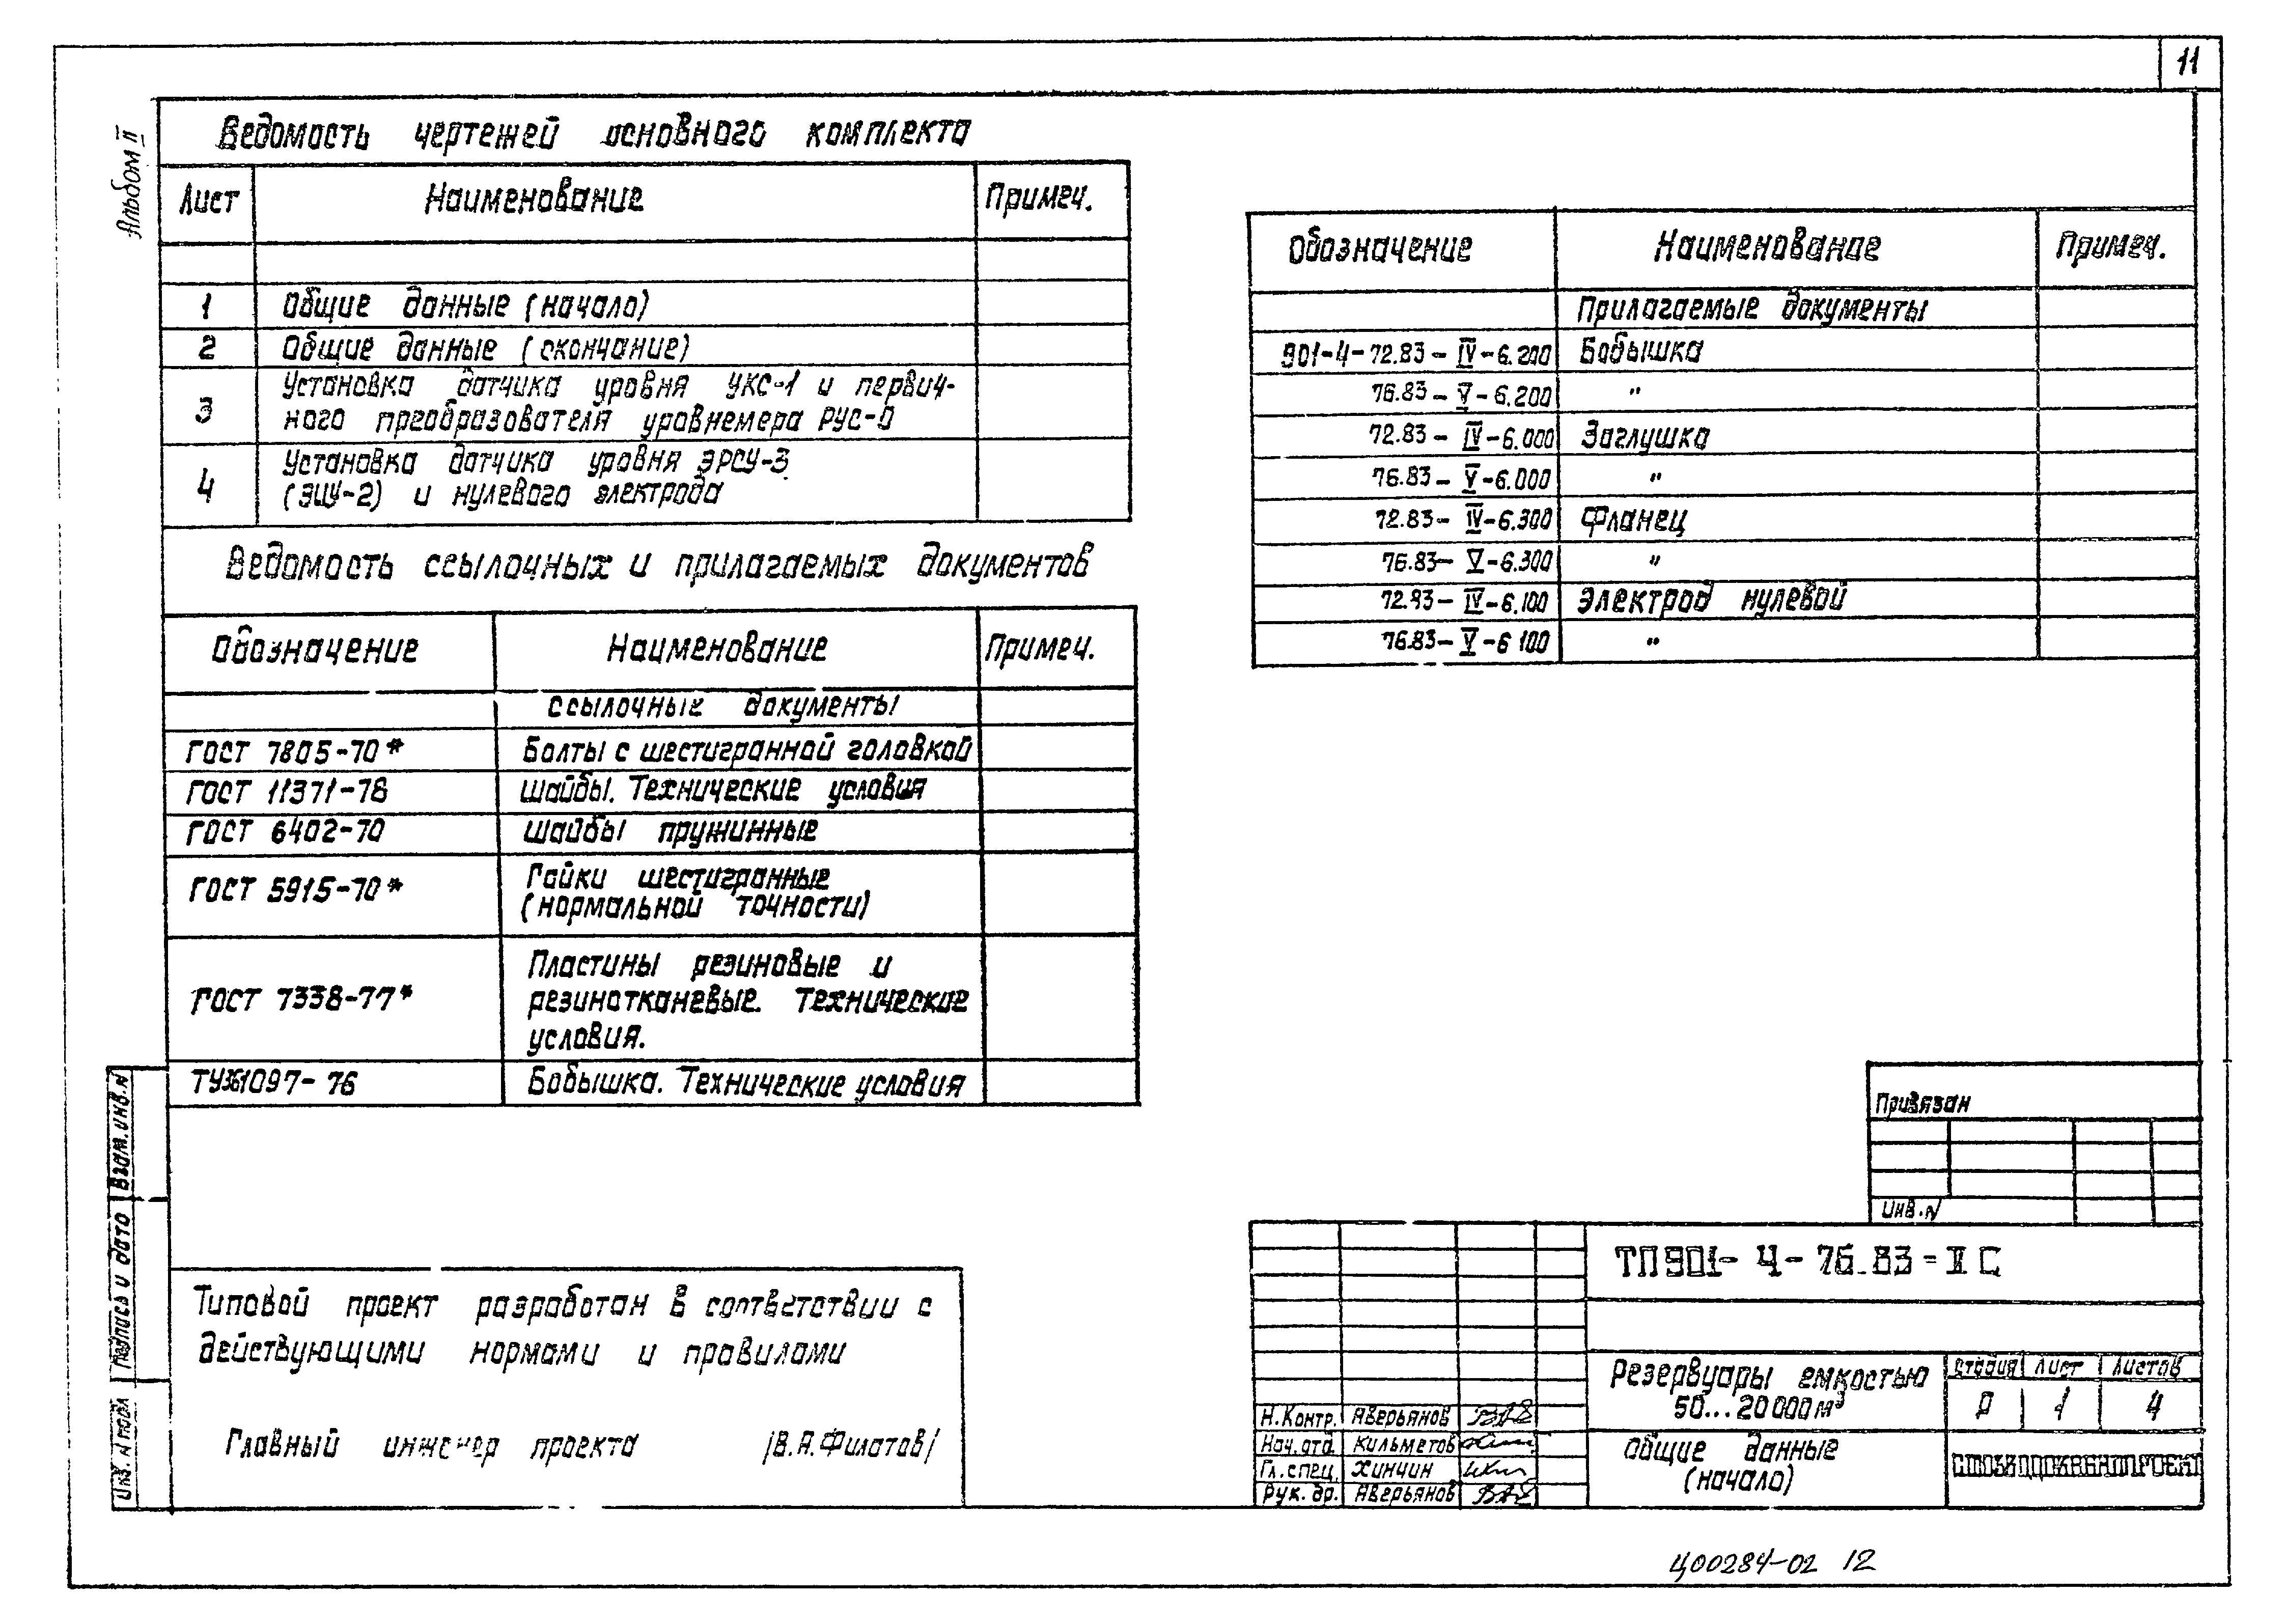 11
Альбом II
Ведомость чертежей основного комплекта
Лист Наименование Примеч.
1 Общие данные (начало)
2 Общие данные (окончание)
3 Установка датчика уровня УКС-1 и первич-
ного преобразователя уровнемера РУС-0
4 Установка датчика уровня ЭРСУ-3
(ЭИУ-2) и нулевого электрода
Ведомость ссылочных и прилагаемых документов
Обозначение Наименование Примеч.
Ссылочные документы
ГОСТ 7805-70* Болты с шестигранной головкой
ГОСТ 11371-78 Шайбы. Технические условия
ГОСТ 6402-70 Шайбы пружинные
ГОСТ 5915-70* Гайки шестигранные
(нормальной точности)
ГОСТ 7338-77* Пластины резиновые и
резинотканевые. Технические
условия.
ТУ361097-76 Бобышка. Технические условия
Обозначение Наименование Примеч.
Прилагаемые документы
901-4-72.83-IV-6.200 Бобышка
76.83-V-6.200 "
72.83-IV-6.000 Заглушка
76.83-V-6.000 "
72.83-IV-6.300 Фланец
76.83-V-6.300 "
72.83-IV-6.100 Электрод нулевой
76.83-V-6 100 "
Типовой проект разработан в соответствии с
действующими нормами и правилами
Главный инженер проекта /В.А.Филатов/
Взам. инв. N
Подпись и дата
Инв. N подл
Привязан
Инв. N
ТП 901-4-76.83-II С
Резервуары емкостью
50...20000м³
Стадия Лист Листов
Р 1 4
Н.Контр. Аверьянов
Нач.отд. Кильметов
Гл.спец. Хинчин
Рук. др. Аверьянов
Общие данные
(начало)
СОЮЗВОДОКАНАЛПРОЕКТ
Ц00284-02 12